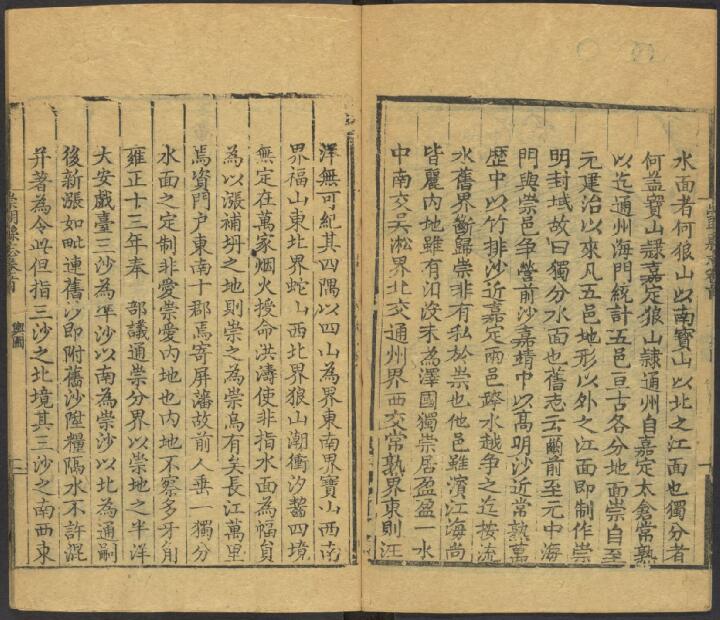 水面者何狼山以南寶山以北之江面也獨分者
何蓋寶山隸嘉定狼山隸通州自嘉定太倉常熟
以迄通州海門統計五邑亘古各分地面崇自至
元建治以來凡五邑地形以外之江面即制作崇
明封域故曰獨分水面也舊志云爾前至元中海
門與崇邑爭營前沙嘉靖中以高明沙近常熟萬
歷中以竹排沙近嘉定兩邑踏水越爭之迄按流
水舊界斷歸崇非有私於崇也他邑雖濱江海尚
皆麗內地雖有汨沒末為澤國獨崇居盈盈 水
中南交吳淞界北交通州界西交常熟界東則汪
洋無可紀其四隅以四山為界東南界寶山西南
界福山東北界蛇山西北界狼山潮衝汐齧四境
無定在萬家烟火授命洪濤使非指水面為幅員
為以漲補坍之地則崇之為崇烏有矣長江萬里
焉資門戶東南十郡焉寄屏藩故前人垂一獨分
水面之定制非愛崇愛內地也內地不察多牙角
雍正十三年奉 部議通崇分界以崇地之半洋
大安戲臺三沙為準沙以南為崇沙以北為通嗣
後新漲如毗連舊沙即附舊沙陞糧隔水不許混
并著為令此但指三沙之北境其三沙之南西東
輿圖